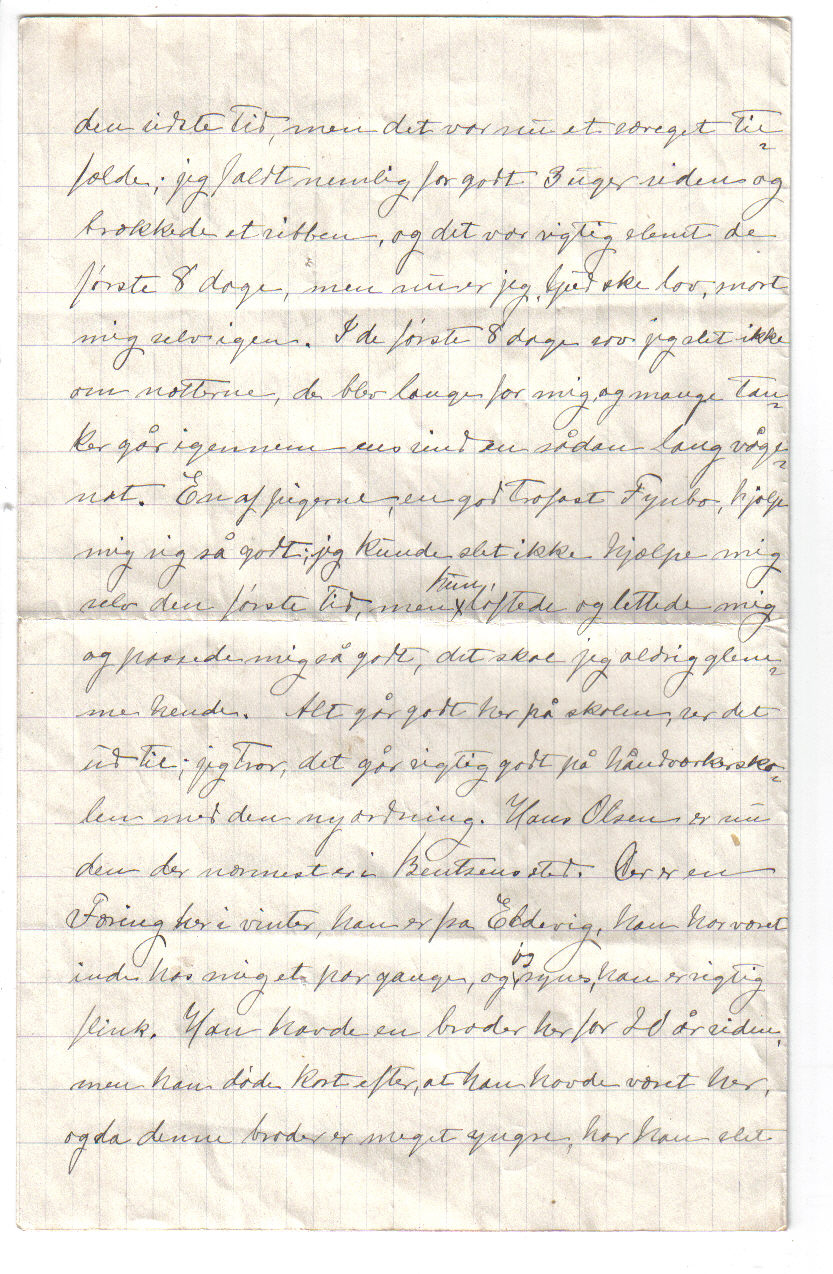 den sidste tid, men det var nu et særeget til-
fælde; jeg faldt nemlig for godt 3 uger siden og
brækkede et ribben, og det var rigtig slemt de
første 8 dage, men nu er jeg, Gud ske lov, mest
mig selv igen. I de første 8 dage sov jeg slet ikke
om nætterne, de blev lange for mig, og mange tan-
ker går igennem ens sind en sådan lang våge-
nat. En af pigerne, en god trofast Fynbo, hjalp
mig sig så godt; jeg kunde slet ikke hjælpe mig
selv den første tid, men hun løftede og lettede mig
og passede mig så godt, det skal jeg aldrig glem-
me hende. Alt går godt her på skolen, ser det
ud til; jeg tror, det går rigtig godt på håndværkersko-
len med den ny ordning. Hans Olsen er nu
den der nærmest er i Bentsens sted. Der er en
Færing her i vinter, han er fra Eldevig, han har været
inde hos mig et par gange, og jeg synes, han er rigtig
flink. Han havde en broder her for 20 år siden,
men han døde kort efter, at han havde været her,
og da denne broder er meget yngre, har han slet